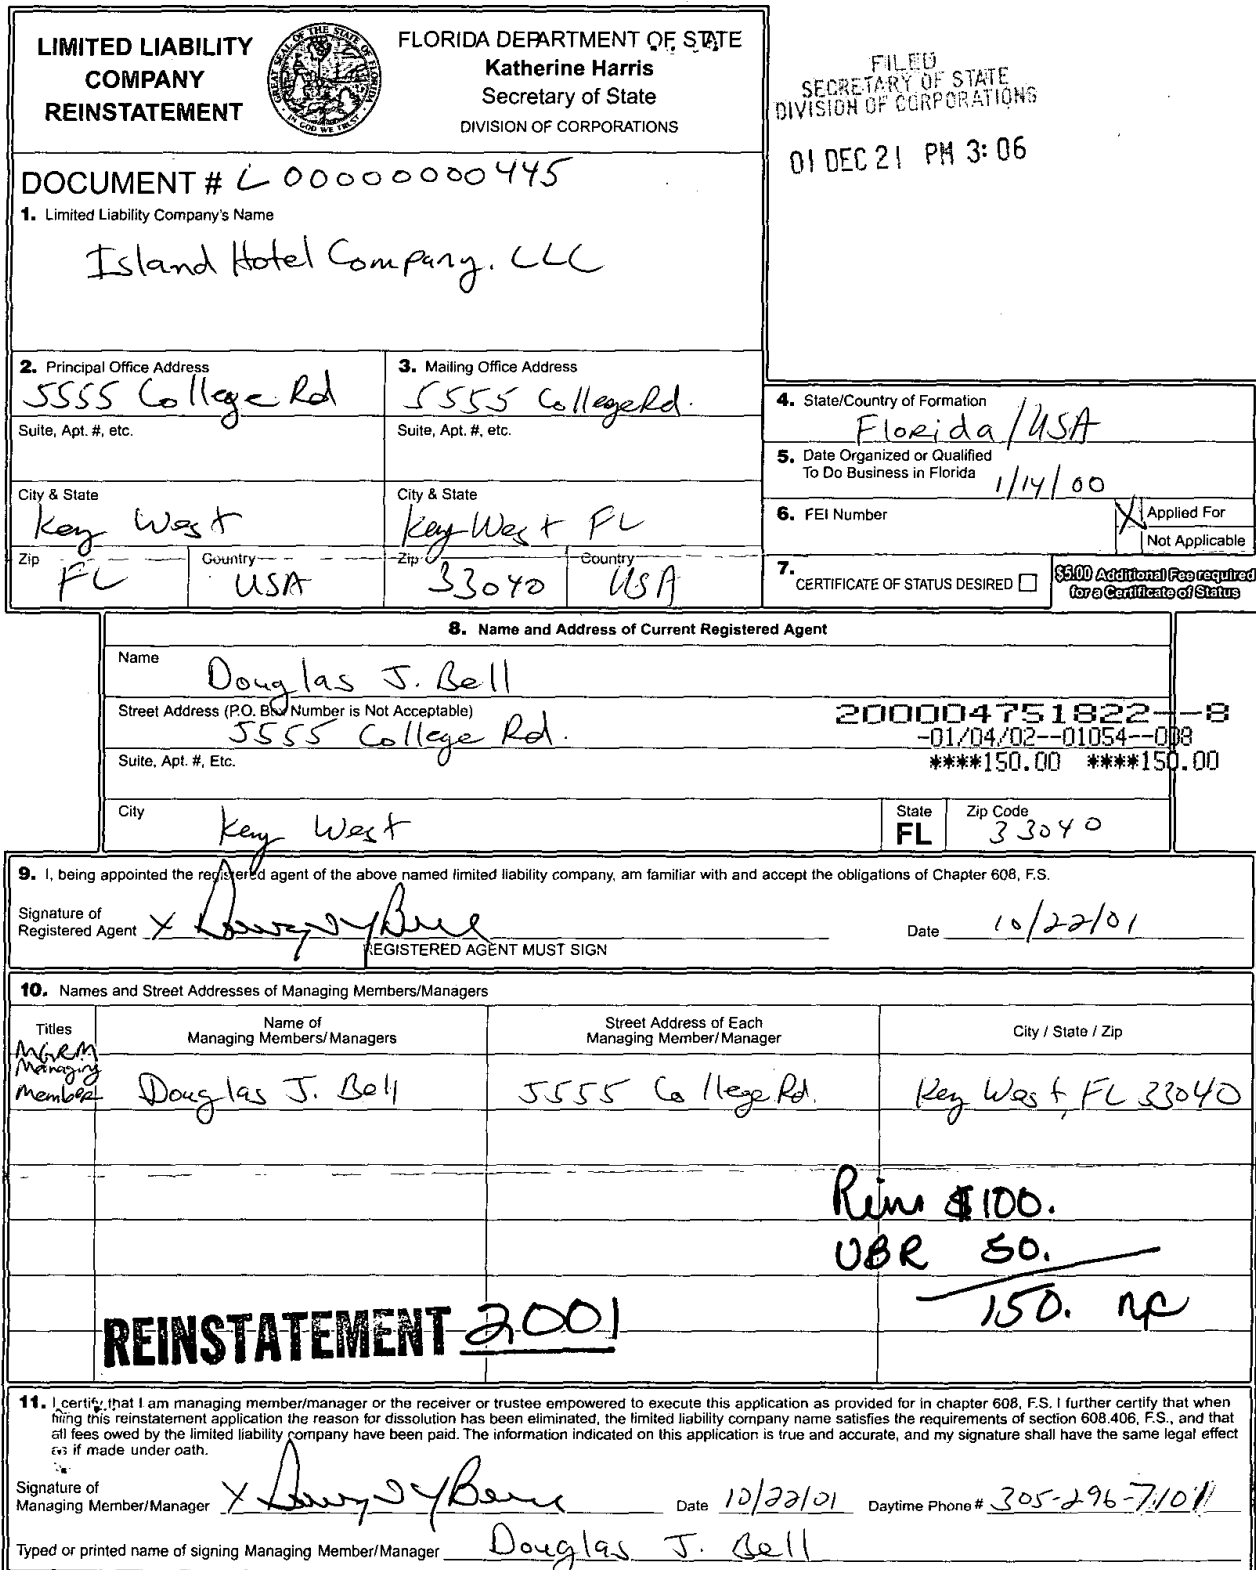 LIMITED LIABILITY
COMPANY
REINSTATEMENT
GREAT SEAL OF THE STATE OF FLORIDA
IN GOD WE TRUST
FLORIDA DEPARTMENT OF STATE
Katherine Harris
Secretary of State
DIVISION OF CORPORATIONS
FILED
SECRETARY OF STATE
DIVISION OF CORPORATIONS
01 DEC 21 PM 3:06
DOCUMENT # L00000000445
1. Limited Liability Company's Name
Island Hotel Company, LLC
2. Principal Office Address
5555 College Rd
Suite, Apt. #, etc.
City & State
Key West
Zip
FL
Country
USA
3. Mailing Office Address
5555 College Rd.
Suite, Apt. #, etc.
City & State
Key West FL
Zip
33040
Country
USA
4. State/Country of Formation
Florida/USA
5. Date Organized or Qualified
To Do Business in Florida 1/14/00
6. FEI Number
X Applied For
Not Applicable
7. CERTIFICATE OF STATUS DESIRED
$5.00 Additional Fee required
for a Certificate of Status
8. Name and Address of Current Registered Agent
Name
Douglas J. Bell
Street Address (P.O. Box Number is Not Acceptable)
5555 College Rd.
200004751822--8
-01/04/02--01054--008
****150.00 ****150.00
Suite, Apt. #, Etc.
City
Key West
State
FL
Zip Code
33040
9. I, being appointed the registered agent of the above named limited liability company, am familiar with and accept the obligations of Chapter 608, F.S.
Signature of
Registered Agent X
REGISTERED AGENT MUST SIGN
Date 10/22/01
10. Names and Street Addresses of Managing Members/Managers
Titles
Name of
Managing Members/Managers
Street Address of Each
Managing Member/Manager
City / State / Zip
MGRM
Managing
Member
Douglas J. Bell
5555 College Rd.
Key West, FL 33040
Rein $100.
UBR 50.
150. np
REINSTATEMENT 2001
11. I certify that I am managing member/manager or the receiver or trustee empowered to execute this application as provided for in chapter 608, F.S. I further certify that when
filing this reinstatement application the reason for dissolution has been eliminated, the limited liability company name satisfies the requirements of section 608.406, F.S., and that
all fees owed by the limited liability company have been paid. The information indicated on this application is true and accurate, and my signature shall have the same legal effect
as if made under oath.
Signature of
Managing Member/Manager X
Date 10/22/01
Daytime Phone # 305-296-7101
Typed or printed name of signing Managing Member/Manager Douglas J. Bell